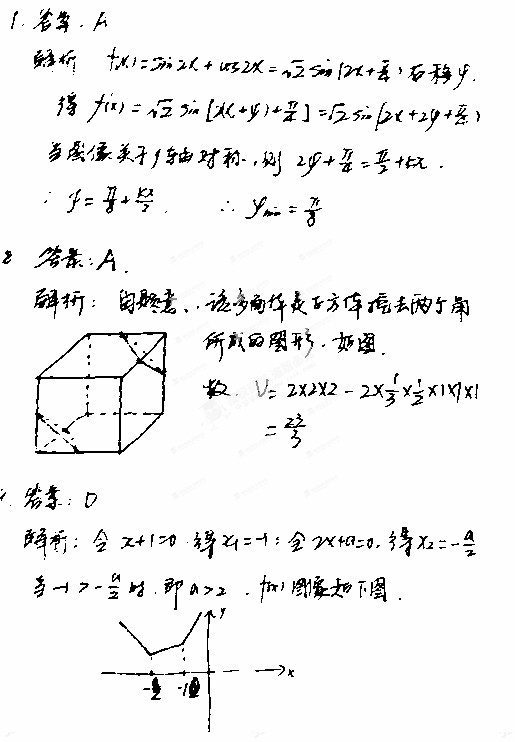 1. 答案: A
解析 f(x)=sin2x+cos2x=√2sin(2x+π/4) 右移φ.
得 f(x)=√2sin[2(x+φ)+π/4]=√2sin(2x+2φ+π/4)
当图像关于y轴对称, 则 2φ+π/4=π/2+kπ.
∴ φ=π/8+kπ/2. ∴ φmin=π/8
2 答案: A.
解析: 由题意, 该多面体是正方体截去两个角
所成的图形, 如图.
故 V=2×2×2-2×1/3×1/2×1×1×1
=23/3
答案: D
解析: 令 x+1=0 得 x₁=-1; 令 2x+a=0, 得 x₂=-a/2
当 -1>-a/2 时, 即 a>2, f(x)图象如下图.
y
x